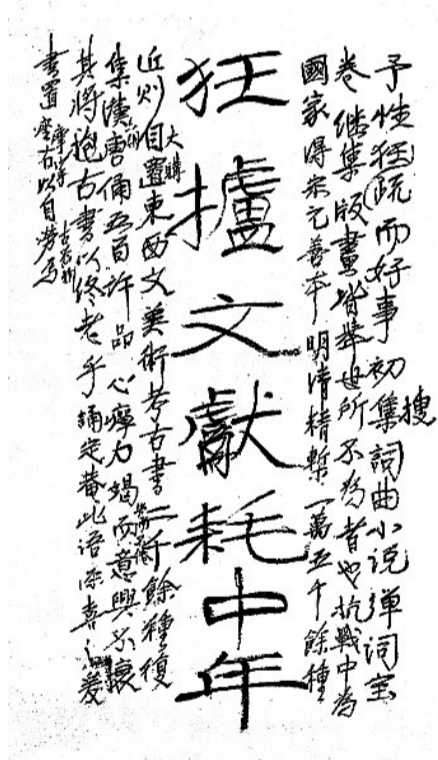 予性狂疏而好事初搜集詞曲小说弹词宝
卷继集版畫皆举世所不为者也抗戰中為
國家得宋元善本明清精槧一萬五千餘種
狂攎文獻耗中年
近则自大購置東西文美術考古書二千餘種復
集漢唐俑五百許品心瘁力竭而意興不衰
其将抱古書以终老乎誦定菴此语深喜之爰
書置座右以自劳焉